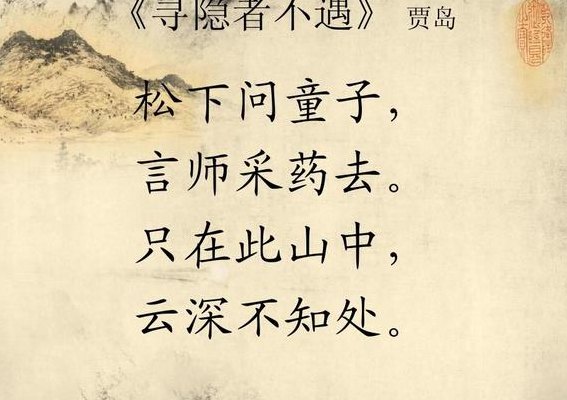 《寻隐者不遇》 贾岛
松下问童子，
言师采药去。
只在此山中，
云深不知处。